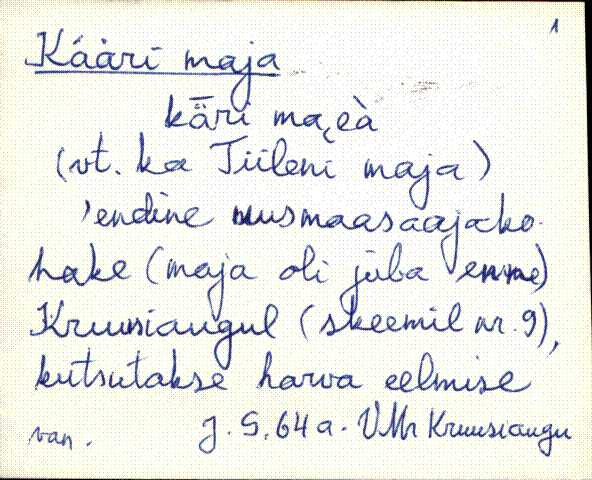 1
Kääri maja
kǟri ma͔eà
(vt. ka Tiileni maja)
'endine uusmaasaajako-
hake (maja oli juba enne)
Kruusiaugul (skeemil nr. 9),
kutsutakse harva eelmise
van. J. S. 64 a. VMr Kruusiaugu